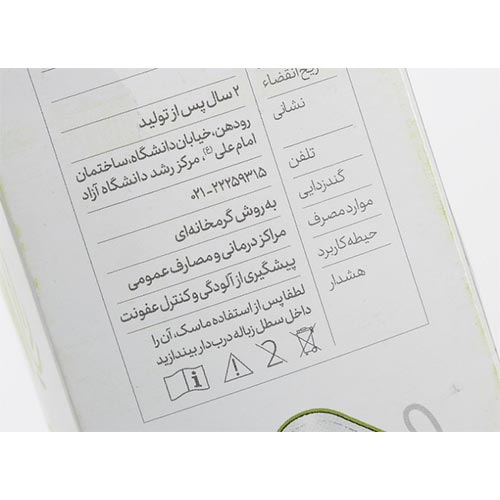 تاریخ انقضاء ۲ سال پس از تولید
نشانی رودهن، خیابان دانشگاه، ساختمان
امام علی (ع)، مرکز رشد دانشگاه آزاد
تلفن ۰۲۱-۲۲۲۵۹۳۱۵
گندزدایی به روش گرمخانه‌ای
موارد مصرف مراکز درمانی و مصارف عمومی
حیطه کاربرد پیشگیری از آلودگی و کنترل عفونت
هشدار لطفا پس از استفاده ماسک، آن را
داخل سطل زباله درب دار بیندازید